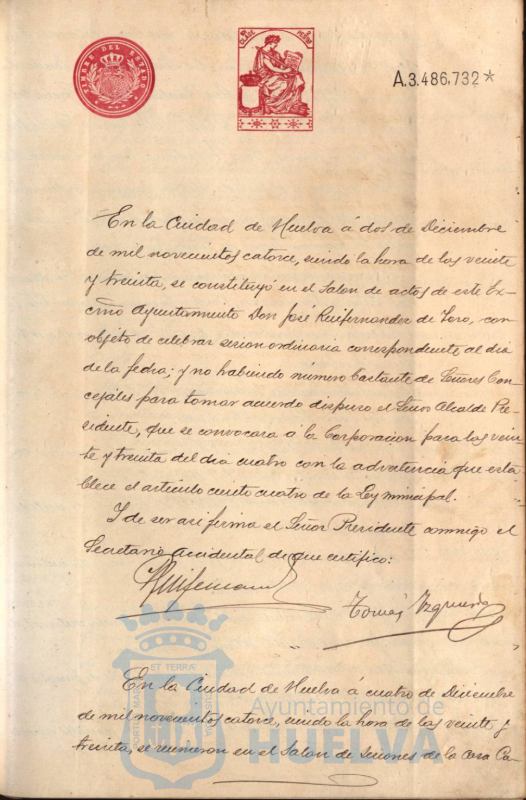 TIMBRE DEL ESTADO
A.3.486.732*
En la Ciudad de Huelva á dos de Diciembre
de mil novecientos catorce, siendo la hora de las veinte
y treinta, se constituyó en el Salon de actos de este Ex-
cmo Ayuntamiento Don José Ruifernandez de Toro, con
objeto de celebrar sesion ordinaria correspondiente al dia
de la fecha; y no habiendo número bastante de Señores Con-
cejales para tomar acuerdo dispuso el Señor Alcalde Pre-
sidente, que se convocara á la Corporacion para las vein-
te y treinta del dia cuatro con la advertencia que esta-
blece el articulo ciento cuatro de la Ley municipal.
Y de ser asi firma el Señor Presidente conmigo el
Secretario accidental de que certifico:
Tomás Izquierdo
ET TERRÆ
En la Ciudad de Huelva á cuatro de Diciembre
Ayuntamiento de
de mil novecientos catorce, siendo la hora de las veinte y
HUELVA
treinta, se reunieron en el Salon de Sesiones de la Casa Ca-